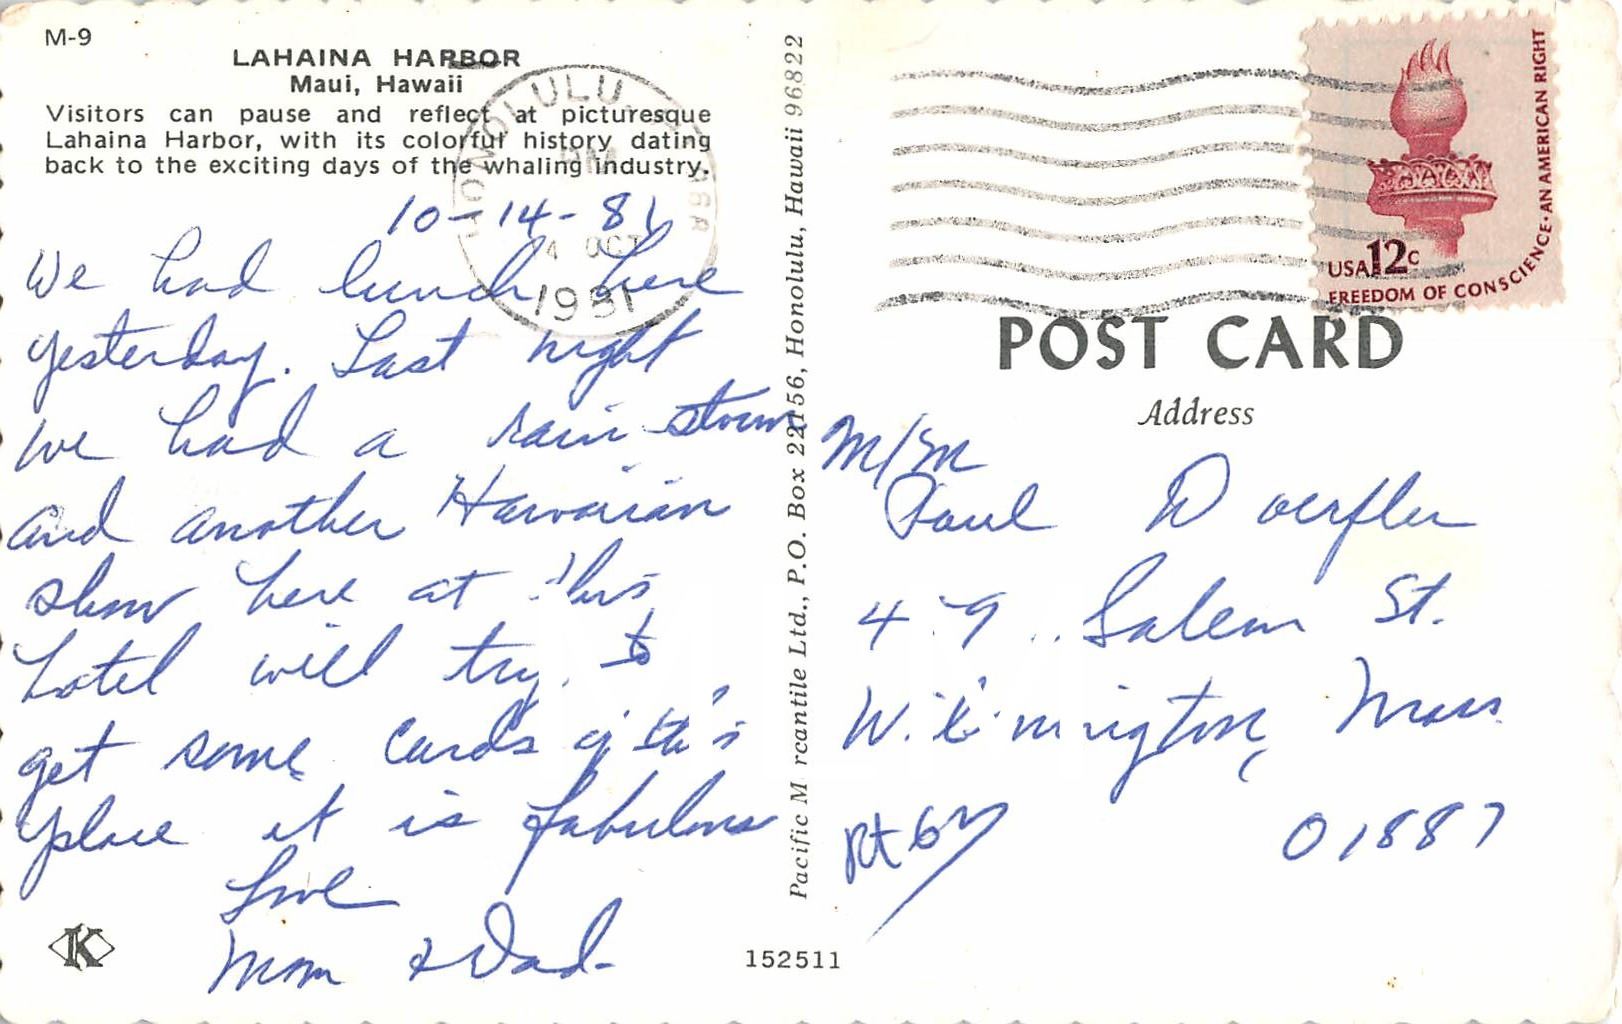 M-9
LAHAINA HARBOR
Maui, Hawaii
Visitors can pause and reflect at picturesque
Lahaina Harbor, with its colorful history dating
back to the exciting days of the whaling industry.
HONOLULU
14 OCT
1981
10-14-81
We had lunch here
yesterday. Last night
we had a rain storm
and another Hawaiian
show here at this
hotel will try to
get some cards of this
place it is fabulous
Love
Mom & Dad-
K
152511
Pacific M rcantile Ltd., P.O. Box 22156, Honolulu, Hawaii 96822
USA 12c
FREEDOM OF CONSCIENCE·AN AMERICAN RIGHT
POST CARD
Address
M/M
Paul Doerfler
4 9 Salem St.
Wilmington, Mass
01887
Rt 62